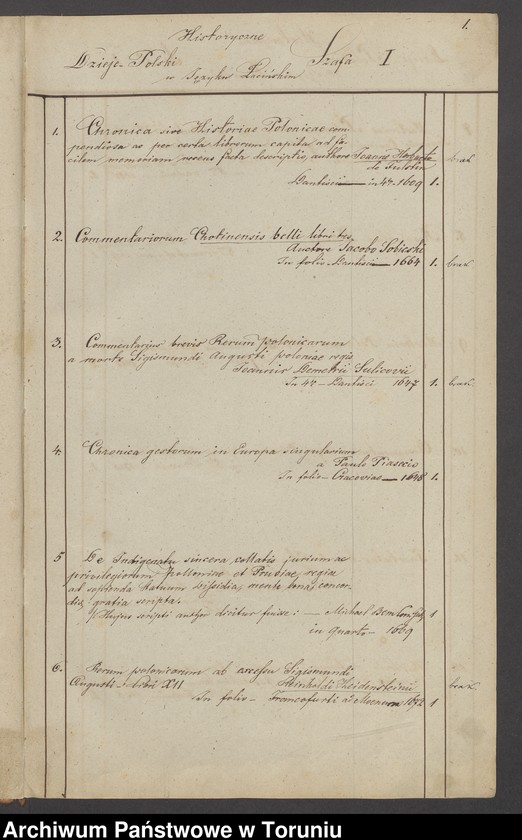 1.
Historyczne
Dzieje Polski Szafa I
w Języku Łacińskim
1. Chronica sive Historiae Polonicae com-
pendiosa ac per certa librorum capita ad fa-
cilem memoriam recens facta descriptio, authore Joanne Herburto
de Fulstin brak
Dantisci — in 4to 1609 1.
2. Commentariorum Chotinensis belli libri tres,
Auctore Jacobo Sobieski
In folio Dantisci — 1664 1. brak
3. Commentarius brevis Rerum polonicarum
a morte Sigismundi Augusti poloniae regis
Joannis Demetrii Sulicovii
In 4to — Dantisci 1647 1. brak
4. Chronica gestorum in Europa singularium
a Paulo Piasecio
In folio — Cracoviae — 1648 1.
5 De Indigenatu sincera collatio jurium ac
privilegiorum Polloniae et Prussiae, regiae
ad dissidia, mente bona, concor-
diae gratia scripta.
scripti author dicitur fuisse: — Michael 1
in Quarto — 1669
6. Rerum polonicarum ab excessu Sigismundi
Augusti — Libri XII Reinholdi Heidensteinii brak
In folio — Francofurti ad Moenum 1672 1
Archiwum Państwowe w Toruniu